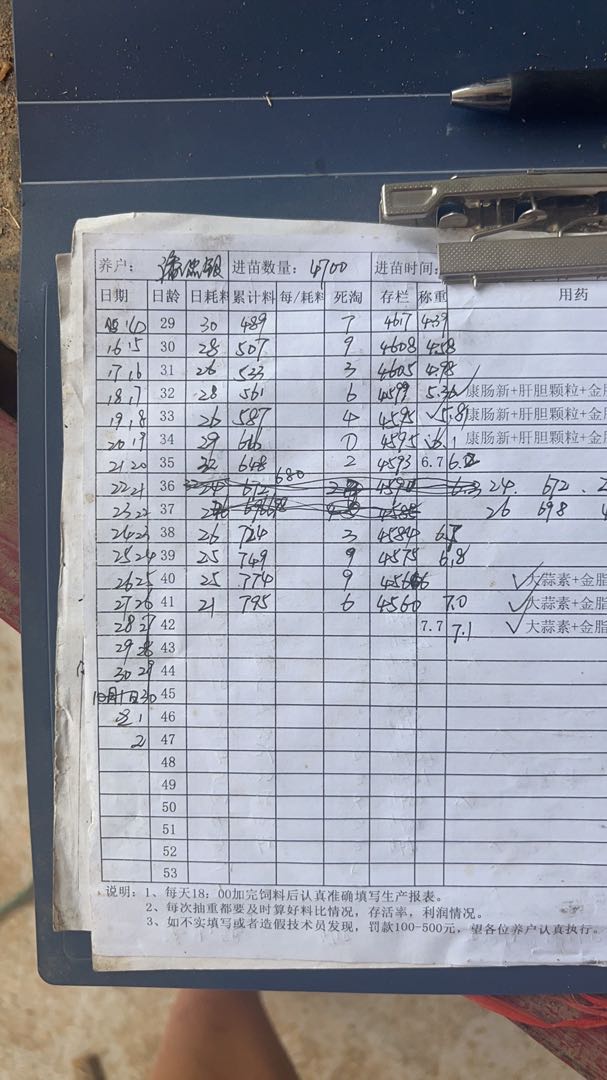 养户： 进苗数量：4700 进苗时间：
日期 日龄 日耗料 累计料 每/耗料 死淘 存栏 称重 用药
29 30 489 7 4617 4.39
16 15 30 28 507 9 4608 4.58
17 16 31 26 533 3 4605 4.98
18 17 32 28 561 6 4599 5.36 ✓康肠新+肝胆颗粒+金
19 18 33 26 587 4 4595 5.81 康肠新+肝胆颗粒+金
20 19 34 29 616 4595 6.1 康肠新+肝胆颗粒+金
21 20 35 32 648 2 4593 6.7
680
22 21 36 24 672 24. 672 .
23 22 37 26 698
24 23 38 26 724 3 4584
25 24 39 25 749 9 4575 6.8
26 25 40 25 774 9 4566 ✓大蒜素+金脂
27 26 41 21 795 6 4560 7.0 ✓大蒜素+金脂
28 27 42 7.7 7.1 ✓大蒜素+金脂
29 28 43
30 29 44
10月1日 30 45
1 46
2 47
48
49
50
51
52
53
说明：1、每天18：00加完饲料后认真准确填写生产报表。
2、每次抽重都要及时算好料比情况，存活率，利润情况。
3、如不实填写或者造假技术员发现，罚款100-500元，望各位养户认真执行。